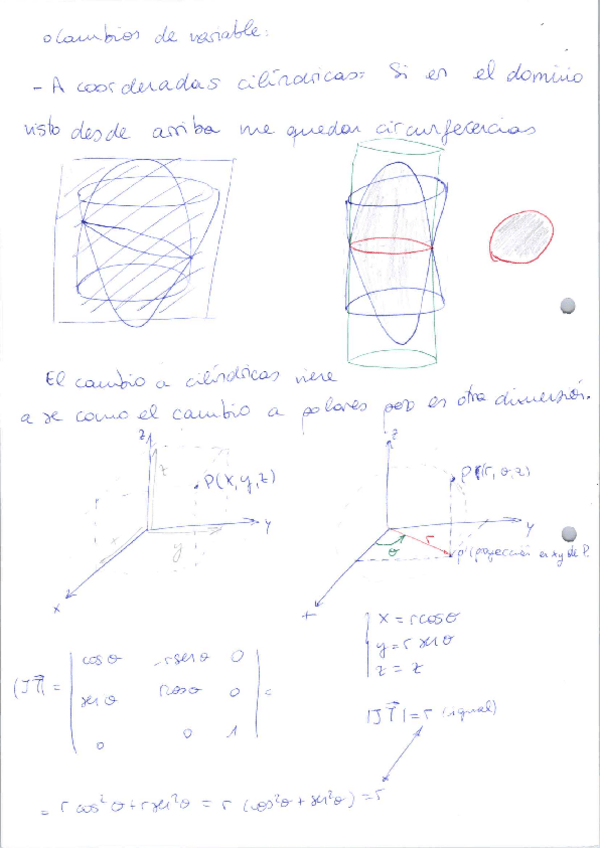 o Cambios de variable:
- A coordenadas cilíndricas: Si en el dominio
visto desde arriba me quedan circunferencias
El cambio a cilíndricas viene
a ser como el cambio a polares pero en otra dimensión.
z
z
P(x,y,z)
y
y
x
x
z
P(r, θ, z)
y
r
θ
P'(proyección en xy de P.
x = r cos θ
y = r sen θ
z = z
|JT| = | cos θ -r sen θ 0 | =
sen θ r cos θ 0
0 0 1
|JT| = r (igual)
= r cos² θ + r sen² θ = r (cos² θ + sen² θ) = r